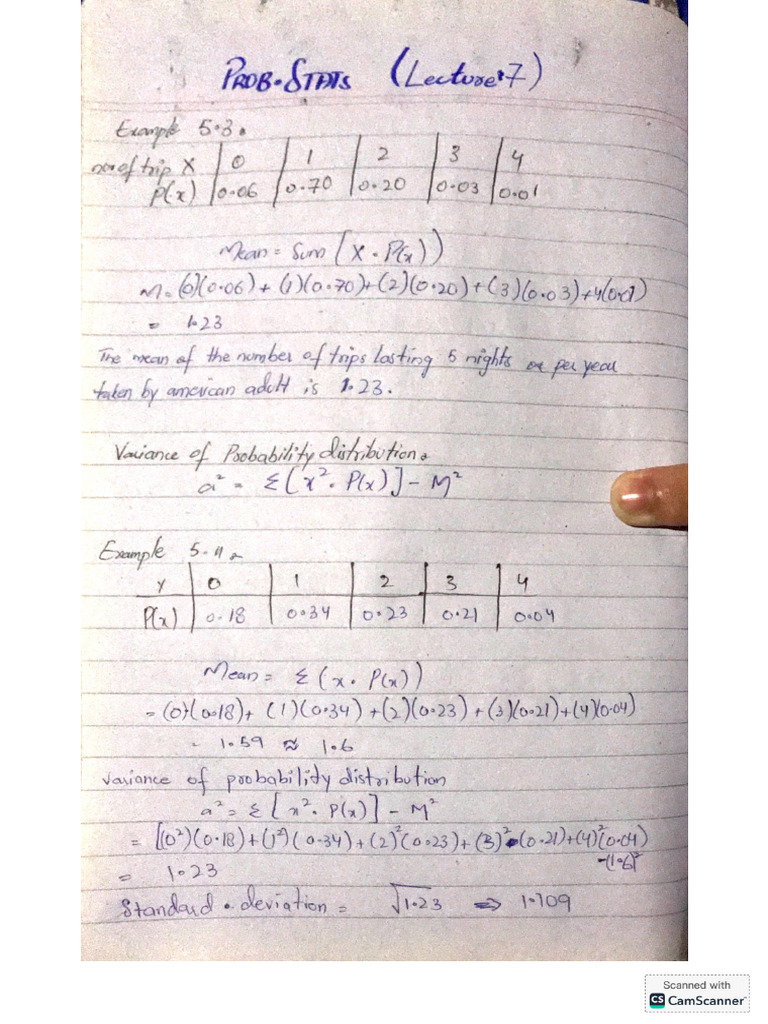 PROB.STATS (Lecture:7)
Example 5.3.
no. of trip X | 0 | 1 | 2 | 3 | 4
P(x) | 0.06 | 0.70 | 0.20 | 0.03 | 0.01
Mean = Sum (X . P(x))
M = (0)(0.06) + (1)(0.70) + (2)(0.20) + (3)(0.03) + 4(0.01)
= 1.23
The mean of the number of trips lasting 5 nights or per year
taken by american adult is 1.23.
Variance of Probability distribution.
a² = Σ [x² . P(x)] - M²
Example 5.4.
X | 0 | 1 | 2 | 3 | 4
P(x) | 0.18 | 0.34 | 0.23 | 0.21 | 0.04
Mean = Σ (x . P(x))
= (0)(0.18) + (1)(0.34) + (2)(0.23) + (3)(0.21) + (4)(0.04)
= 1.59 ≈ 1.6
variance of probability distribution
a² = Σ [x² . P(x)] - M²
= [(0²)(0.18) + (1²)(0.34) + (2)²(0.23) + (3)² (0.21) + (4)²(0.04)
-(1.6)²
= 1.23
Standard . deviation = √1.23 ⇒ 1.109
Scanned with
CS CamScanner